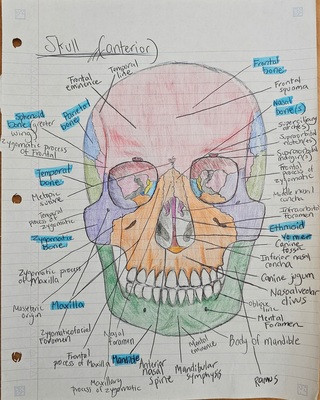 Skull (anterior)
Temporal
line
Frontal
eminence
Parietal
bone
Sphenoid
bone, greater
wing
Zygomatic process
of Frontal
Temporal
bone
Metopic
suture
Temporal
process of zygomatic
Zygomatic
bone
Zygomatic process
of Maxilla
Masseteric
origin
Maxilla
Zygomaticofacial
Foramen
Frontal
process of Maxilla
Nasal
foramen
Maxillary
process of zygomatic
Mandible
Anterior
nasal
spine
Mandibular
symphysis
Mental
eminence
Frontal
bone
Frontal
squama
Nasal
bone(s)
Superciliary
arch(es)
Supraorbital
notch(es)
Supraorbital
margin(s)
Frontal
process of
zygomatic
Middle nasal
concha
Infraorbital
foramen
Ethmoid
Vomer
Canine
fossa
Inferior nasal
concha
Canine jugum
Nasoalveolar
clivus
oblique
line
Mental
Foramen
Body of mandible
Ramus